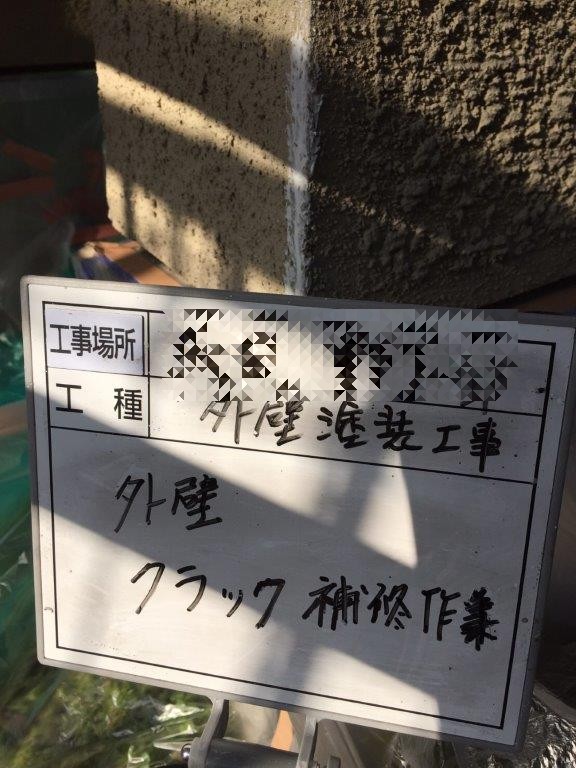 工事場所
工種 外壁塗装工事
外壁
クラック補修作業